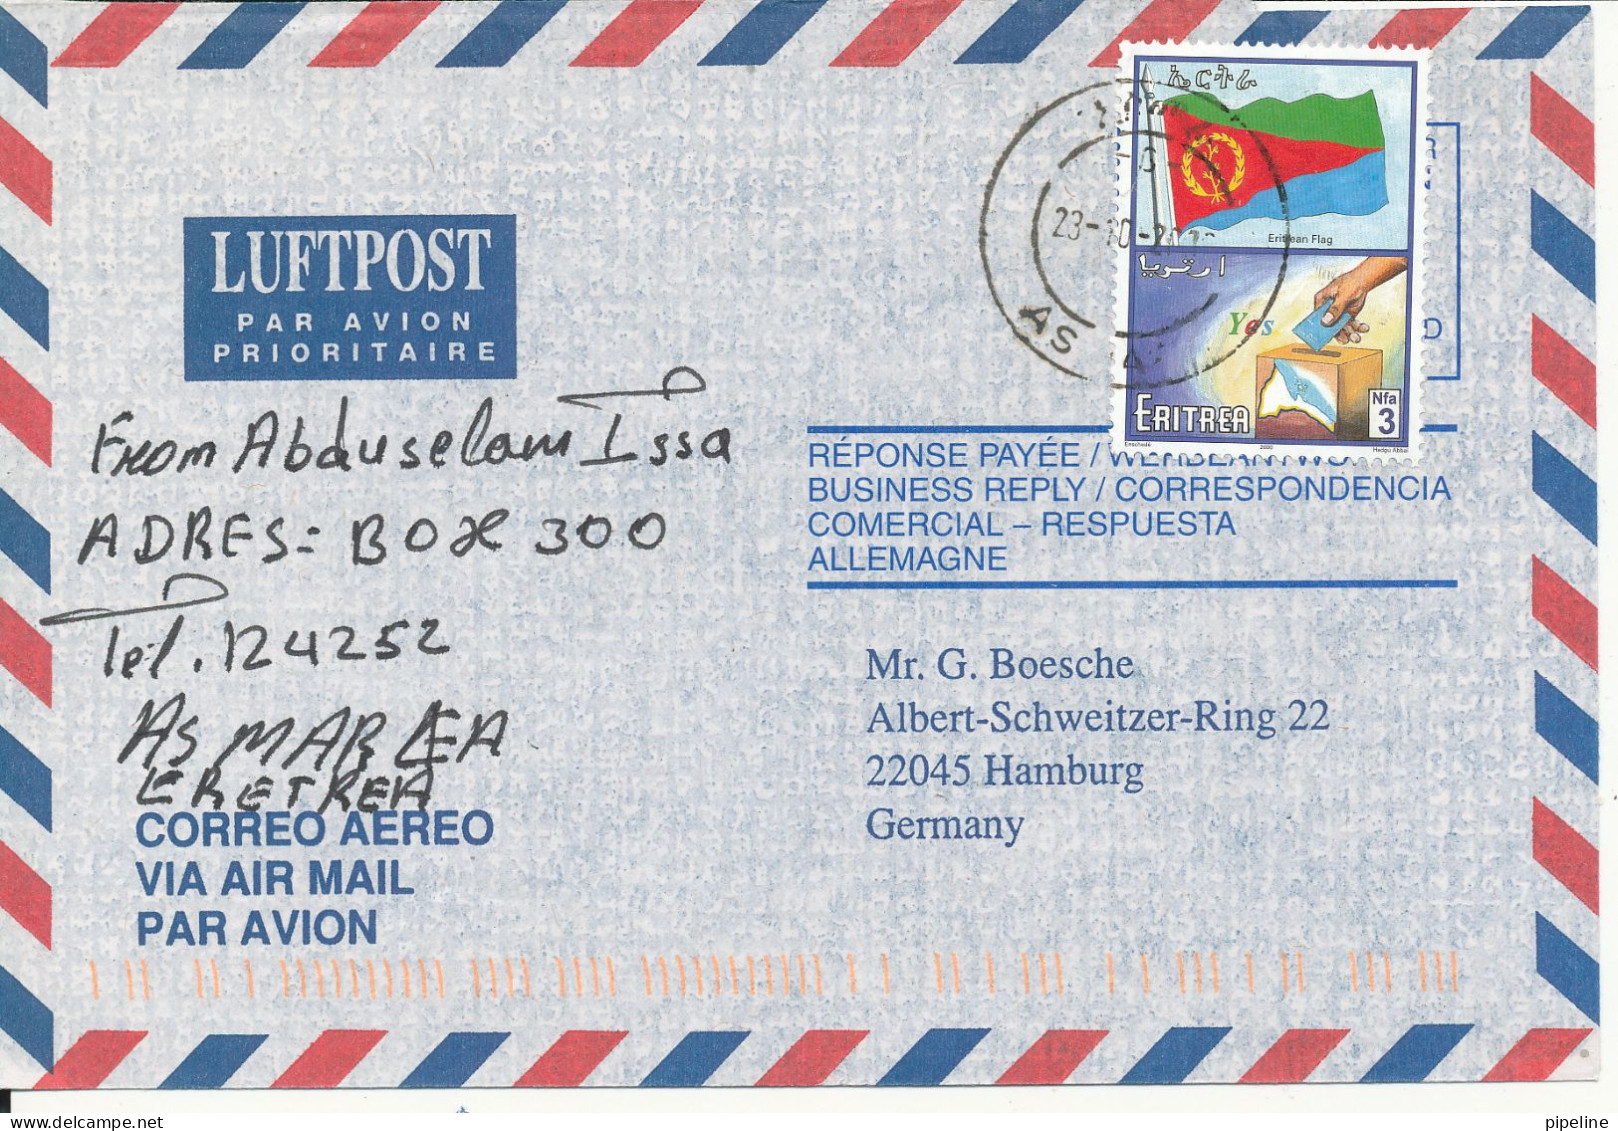 LUFTPOST
PAR AVION
PRIORITAIRE
From Abduselam Issa
ADRES = BOX 300
Tel. 124252
ASMAREA
ERETREA
CORREO AEREO
VIA AIR MAIL
PAR AVION
ኤርትራ
Eritrean Flag
ارتريا
Yes
ERITREA
Nfa
3
Enschedé
2000
23-10-
AS
RÉPONSE PAYÉE /
BUSINESS REPLY / CORRESPONDENCIA
COMERCIAL – RESPUESTA
ALLEMAGNE
Mr. G. Boesche
Albert-Schweitzer-Ring 22
22045 Hamburg
Germany
pipeline